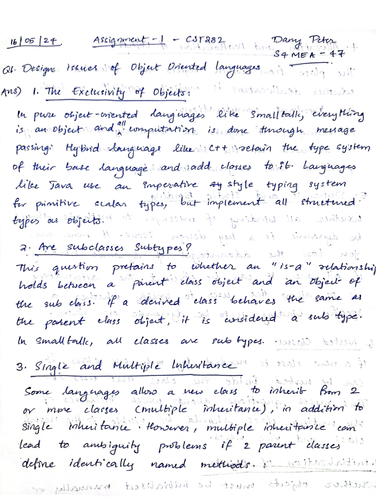 16/05/24 Assignment-1 - CST282 Dany Peter
S4 MEA - 47
Q1. Design Issues of Object Oriented languages
Ans) 1. The Exclusivity of Objects:
In pure object-oriented languages like Smalltalk, everything
is an object and all computation is done through message
passing. Hybrid language like C++ retain the type system
of their base language and add classes to it. Languages
like Java use an imperative style typing system
for primitive scalar types, but implement all structured
types as objects.
2. Are Subclasses Subtypes?
This question pretains to whether an "is-a" relationship
holds between a parent class object and an object of
the sub class. If a derived class behaves the same as
the parent class object, it is considered a sub type.
In Smalltalk, all classes are sub types.
3. Single and Multiple Inheritance
Some languages allow a new class to inherit from 2
or more classes (multiple inheritance), in addition to
single inheritance. However, multiple inheritance can
lead to ambiguity problems if 2 parent classes
define identically named methods.